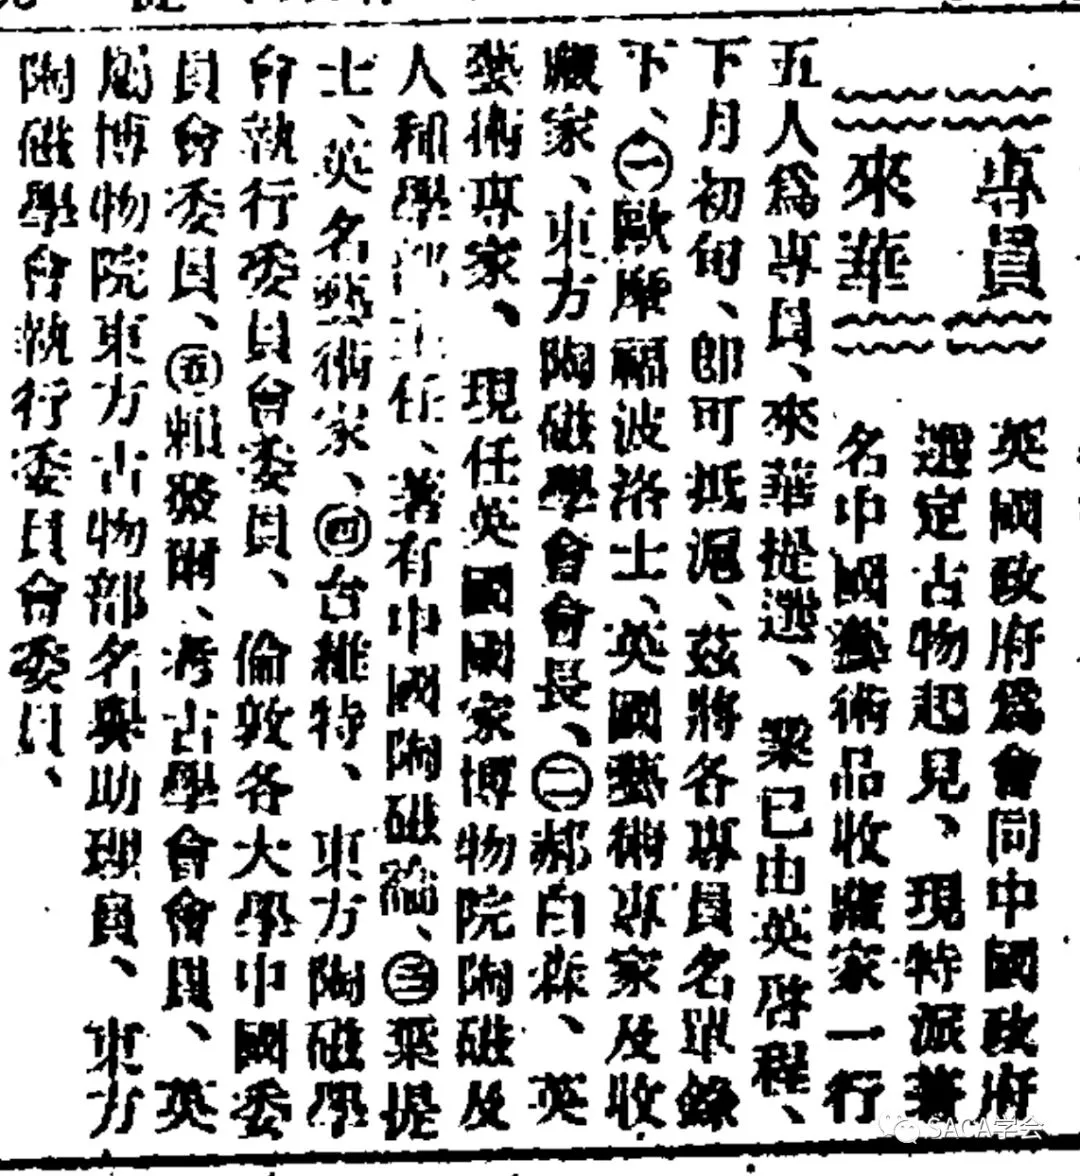 專員
來華
英國政府爲會同中國政府
選定古物起見、現特派著
名中國藝術品收藏家一行
五人爲專員、來華提選、業已由英啓程、
下月初旬、卽可抵滬、茲將各專員名單錄
下、㊀歐摩福波洛士、英國藝術專家及收
藏家、東方陶磁學會會長、㊁郝白森、英
藝術專家、現任英國國家博物院陶磁及
人和學主任、著有中國陶磁、㊂葉提
士、英名藝術家、㊃台維特、東方陶磁學
會執行委員會委員、倫敦各大學中國委
員會委員、㊄賴發爾、考古學會會員、英
屬博物院東方古物部名與助理員、東方
陶磁學會執行委員會委員、
SACA学会